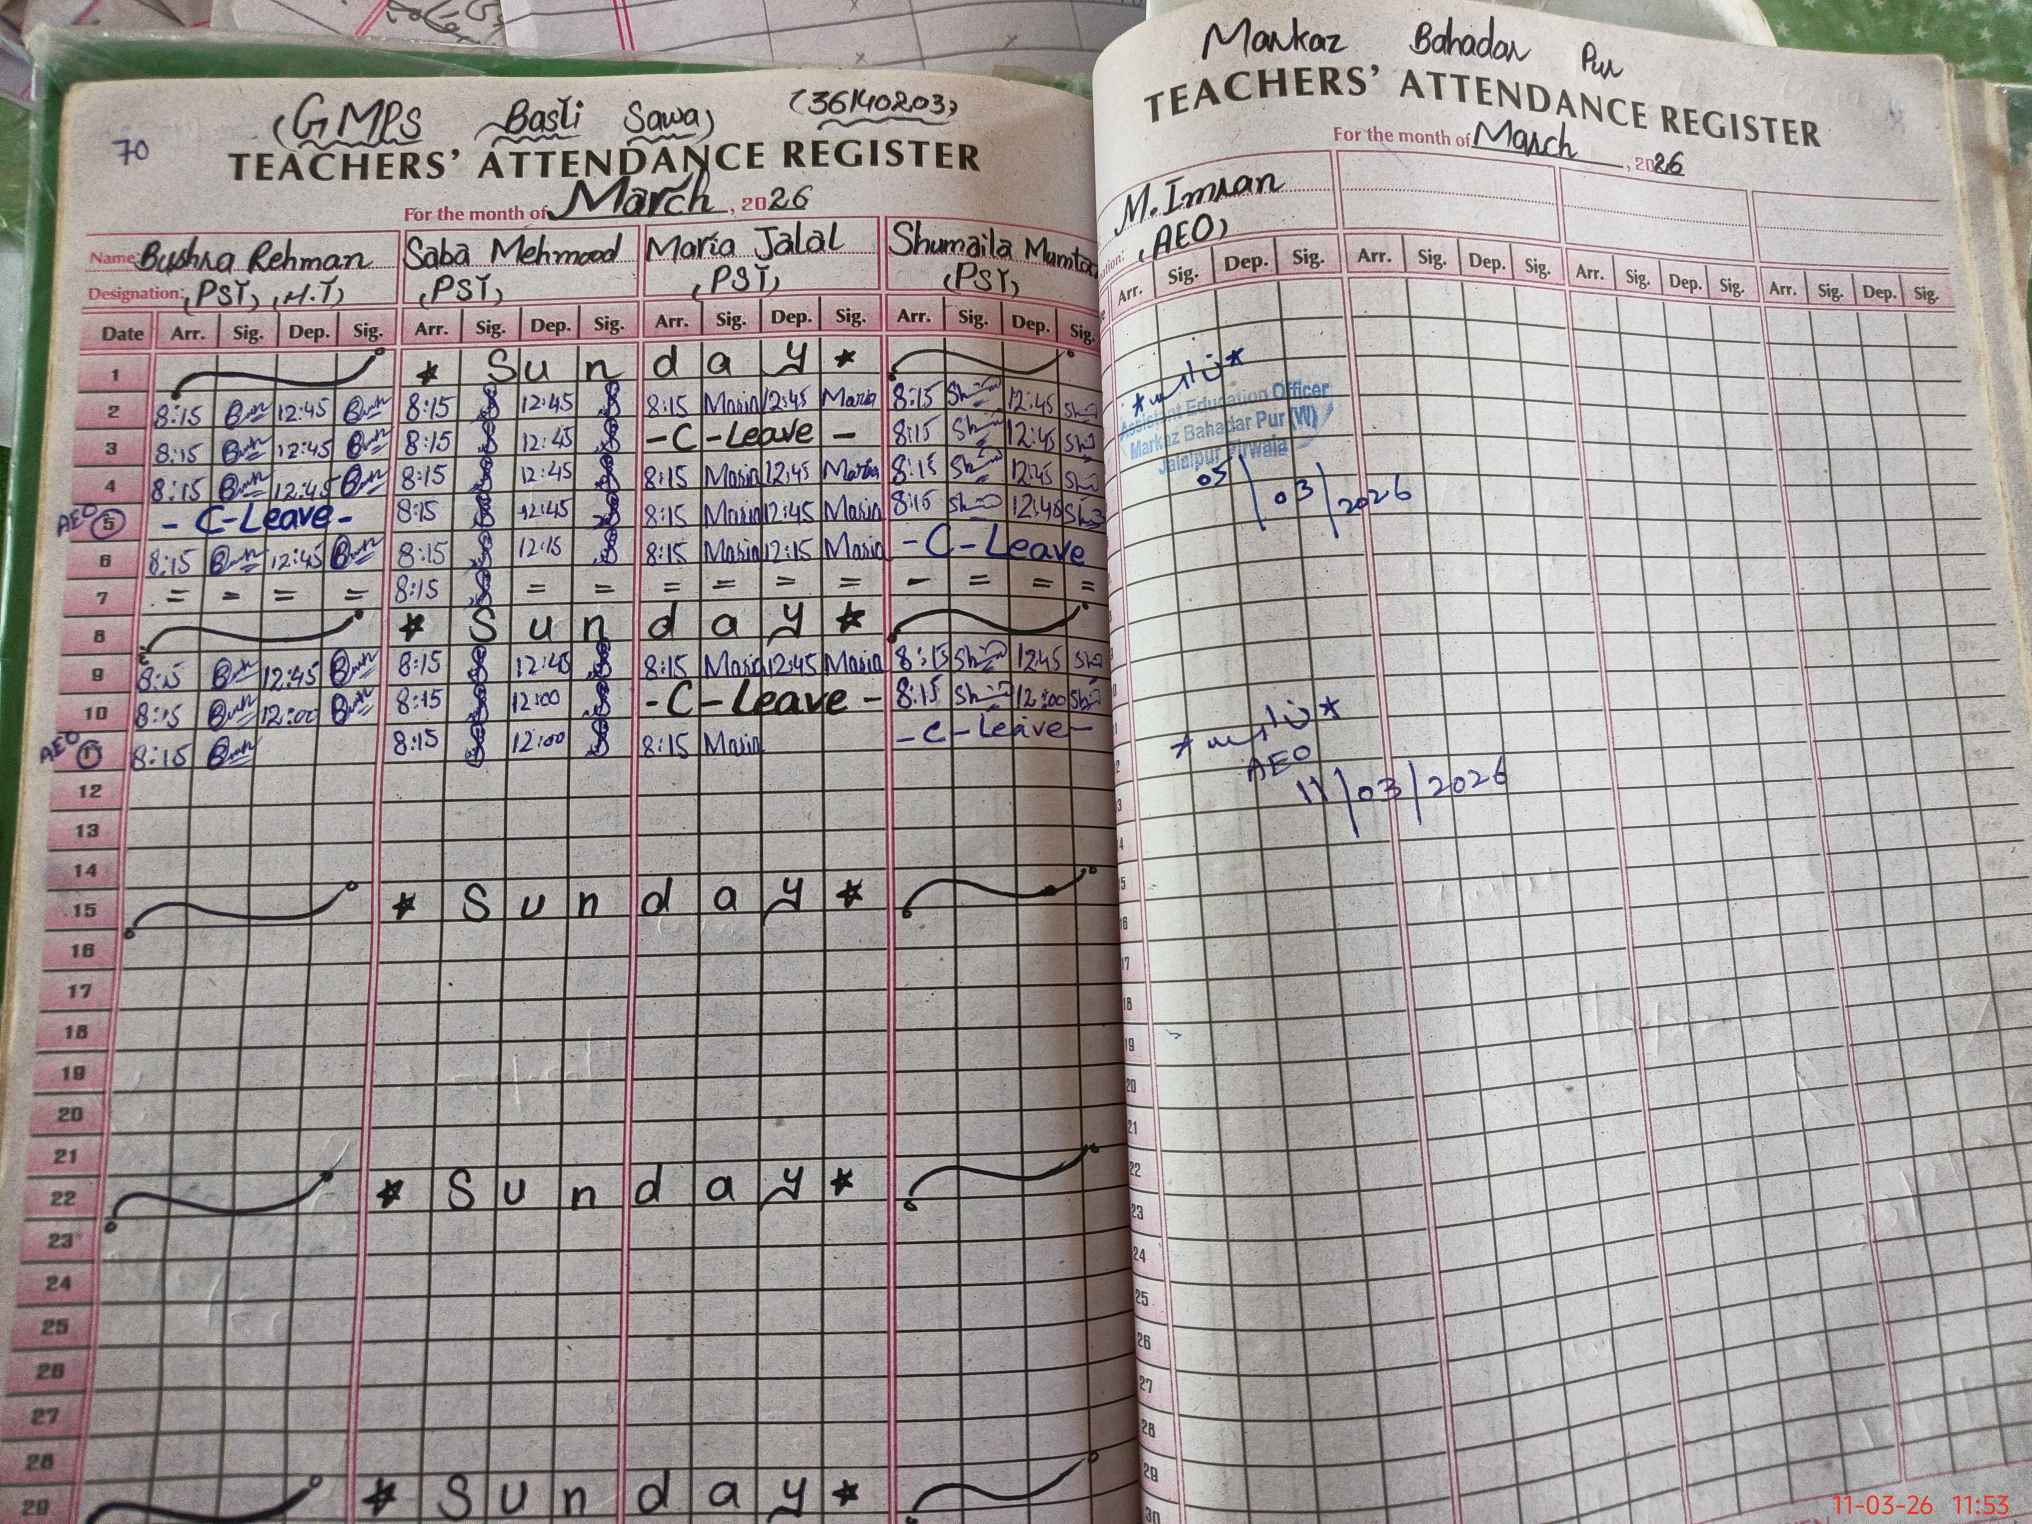 70
(GMPS Basti Sawa) (36140203)
TEACHERS' ATTENDANCE REGISTER
For the month of March, 2026
Name: Bushra Rehman Saba Mehmood Maria Jalal Shumaila Mumtaz
Designation: (PST) (H.T) (PST) (PST) (PST)
Date Arr. Sig. Dep. Sig. Arr. Sig. Dep. Sig. Arr. Sig. Dep. Sig. Arr. Sig. Dep. Sig.
1 * Sunday *
2 8:15 12:45 8:15 12:45 8:15 Maria 12:45 Maria 8:15 12:45
3 8:15 12:45 8:15 12:45 -C-Leave- 8:15 12:45
4 8:15 12:45 8:15 12:45 8:15 Maria 12:45 Maria 8:15 12:45
AEO 5 -C-Leave- 8:15 12:45 8:15 Maria 12:45 Maria 8:15 12:45
6 8:15 12:45 8:15 12:15 8:15 Maria 12:15 Maria -C-Leave
7 = - = = 8:15 = = = = = = - = = =
8 * Sunday *
9 8:15 12:45 8:15 12:45 8:15 Maria 12:45 Maria 8:15 12:45
10 8:15 12:00 8:15 12:00 -C-Leave- 8:15 12:00
AEO 11 8:15 8:15 12:00 8:15 Maria -C-Leave-
12
13
14
15 * Sunday *
16
17
18
19
20
21
22 * Sunday *
23
24
25
26
27
28
29 * Sunday *
Markaz Bahadar Pur
TEACHERS' ATTENDANCE REGISTER
For the month of March, 2026
M. Imran
(AEO)
Arr. Sig. Dep. Sig. Arr. Sig. Dep. Sig. Arr. Sig. Dep. Sig. Arr. Sig. Dep. Sig.
Assistant Education Officer
Markaz Bahadar Pur (W)
Jalalpur Pirwala
05/03/2026
AEO
11/03/2026
15
16
17
18
19
20
21
22
23
24
25
26
27
28
29
30
11-03-26 11:53